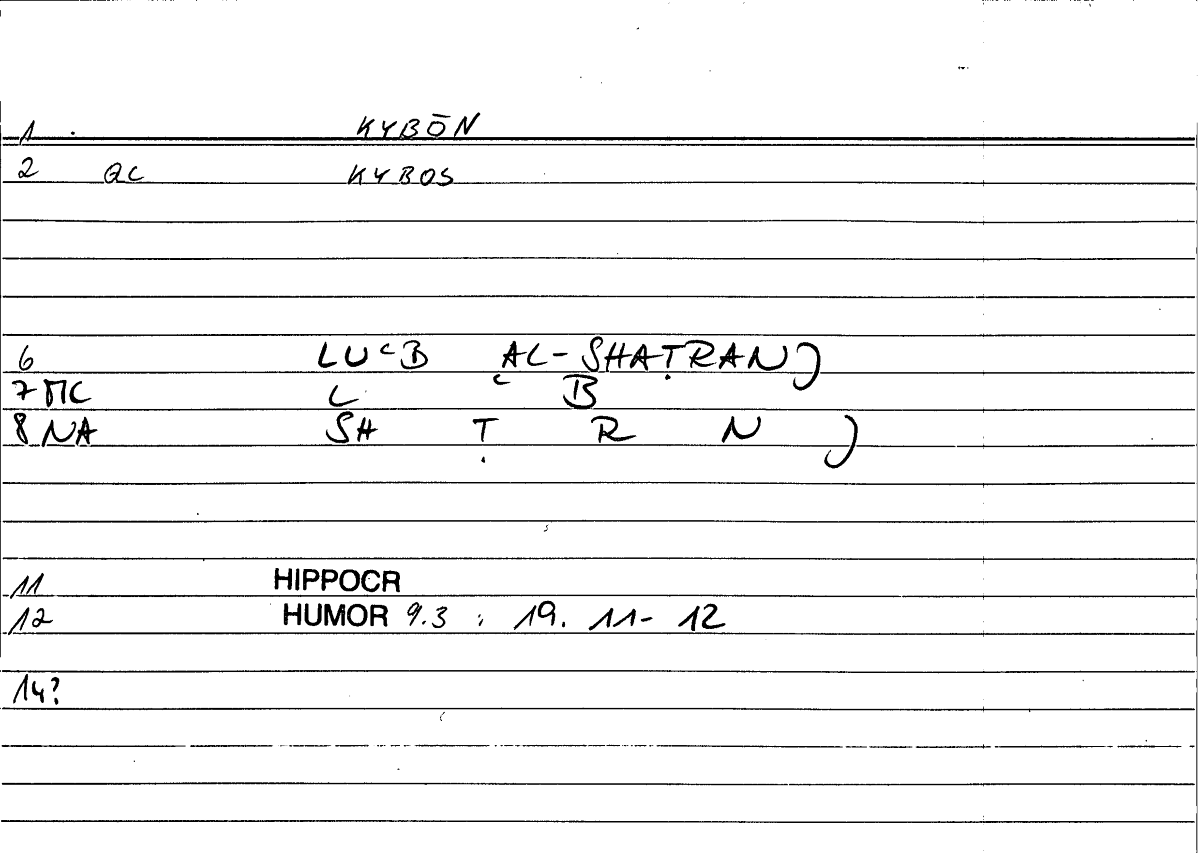 1 . KYBŌN
2 QC KYBOS
6 LUᶜB AL-SHAṬRANJ
7 MC L ᶜ B
8 NA SH Ṭ R N J
11 HIPPOCR
12 HUMOR 9.3 : 19. 11- 12
14?